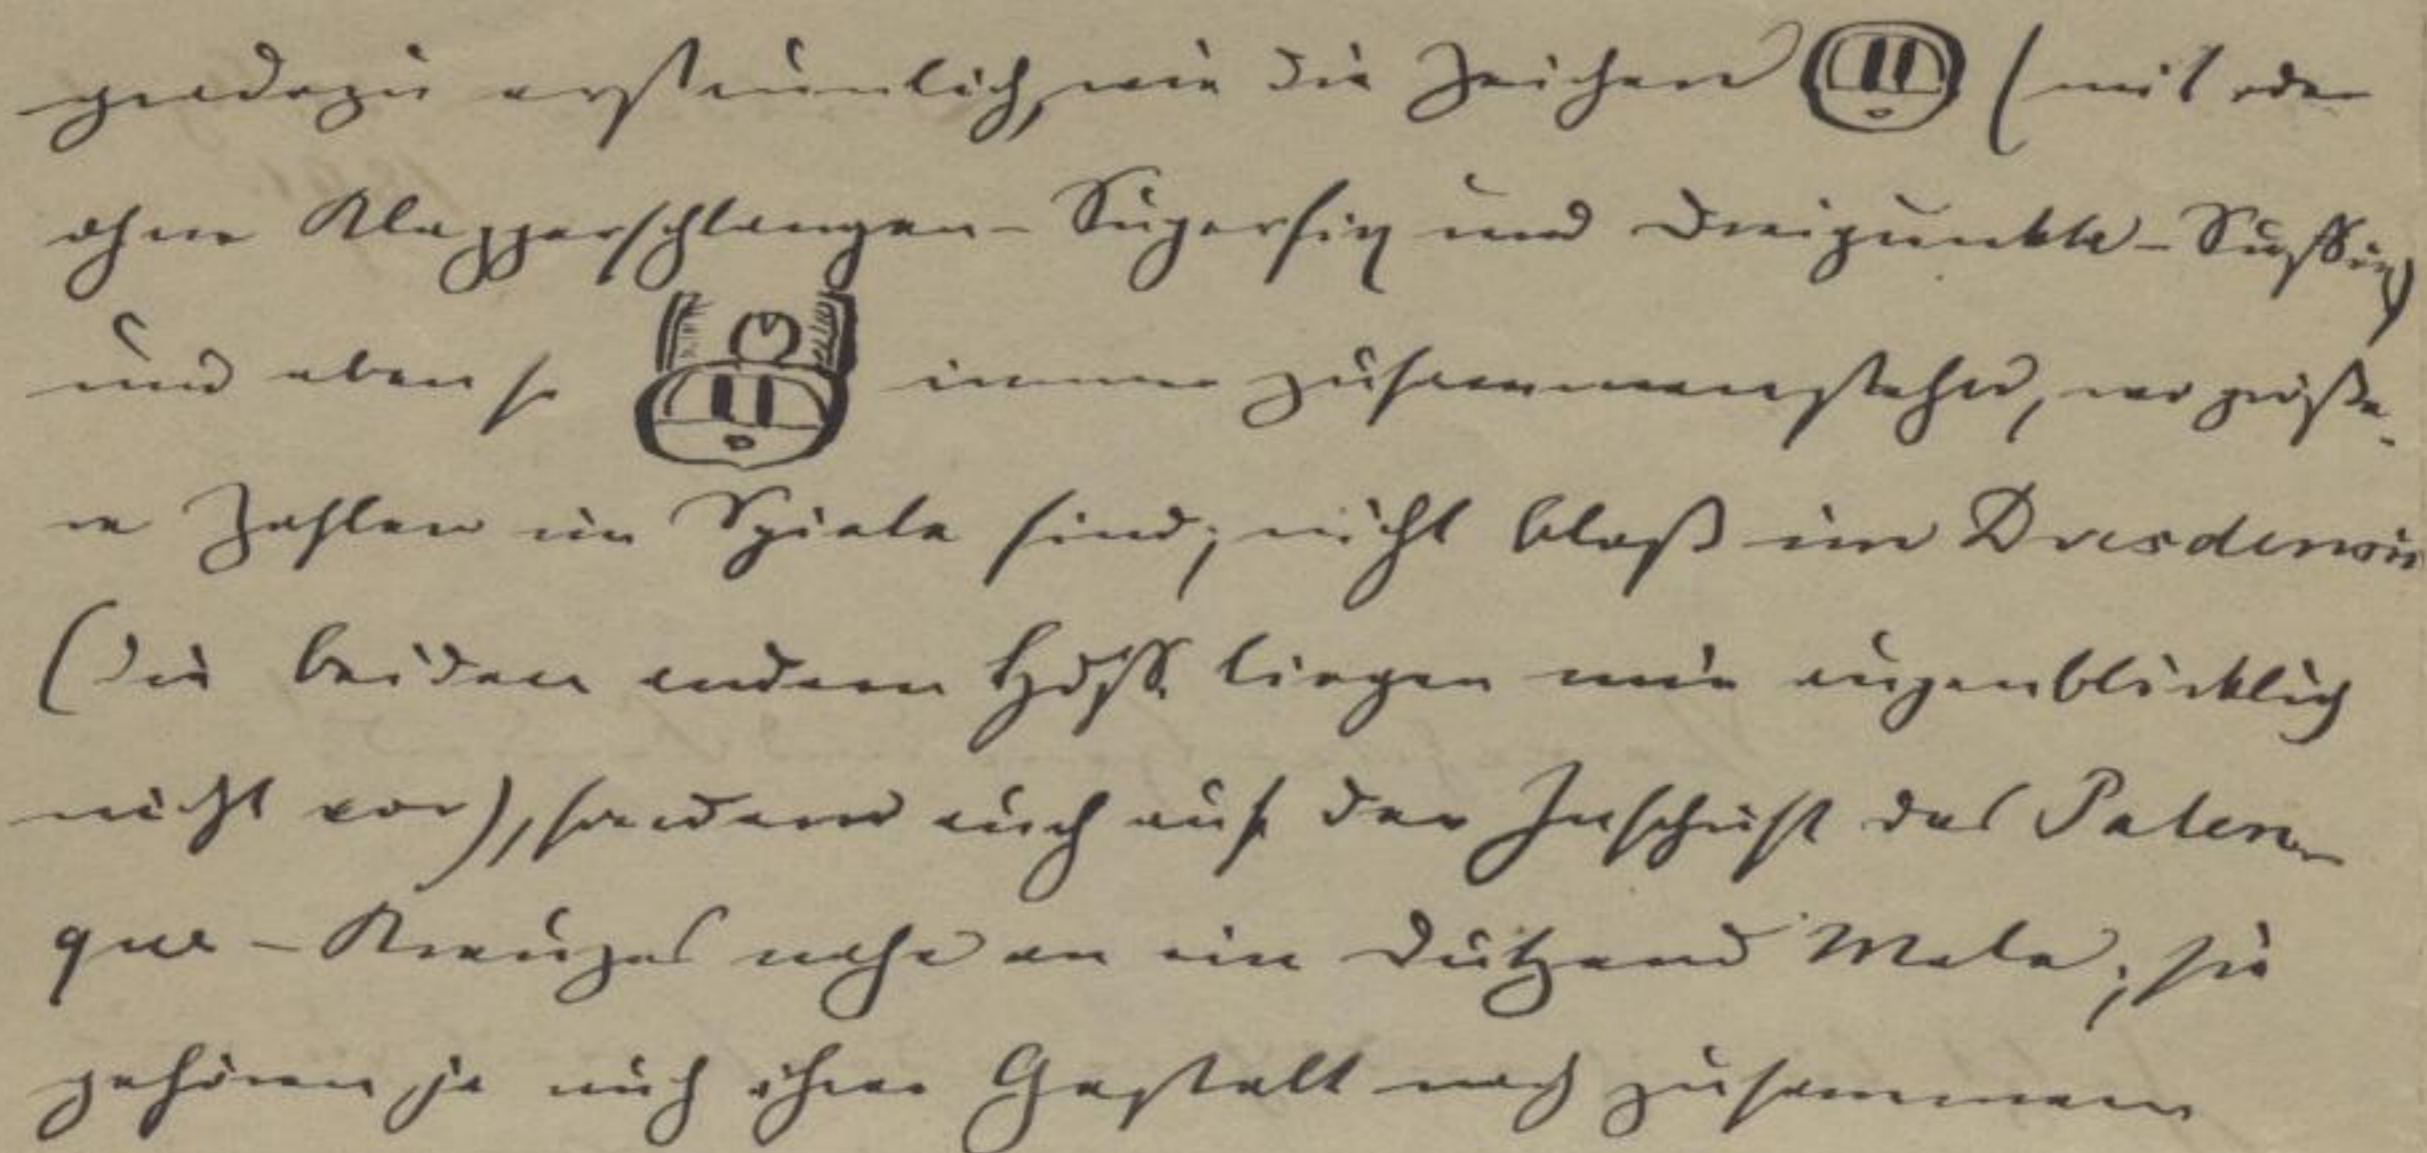 geradezu erstaunlich, wie die Zeichen (mit oder
ohne Klapperschlangen-Superfix und Dreipunkte-Suffix)
und ebenso immer zusammenstehn, wo größe-
re Zahlen im Spiele sind; nicht bloß im Dresdensis
(die beiden andern Hdss. liegen mir augenblicklich
nicht vor), sondern auch auf der Inschrift des Palen-
que-Kreuzes nahe an ein Dutzend Male; sie
gehören ja auch ihrer Gestalt nach zusammen